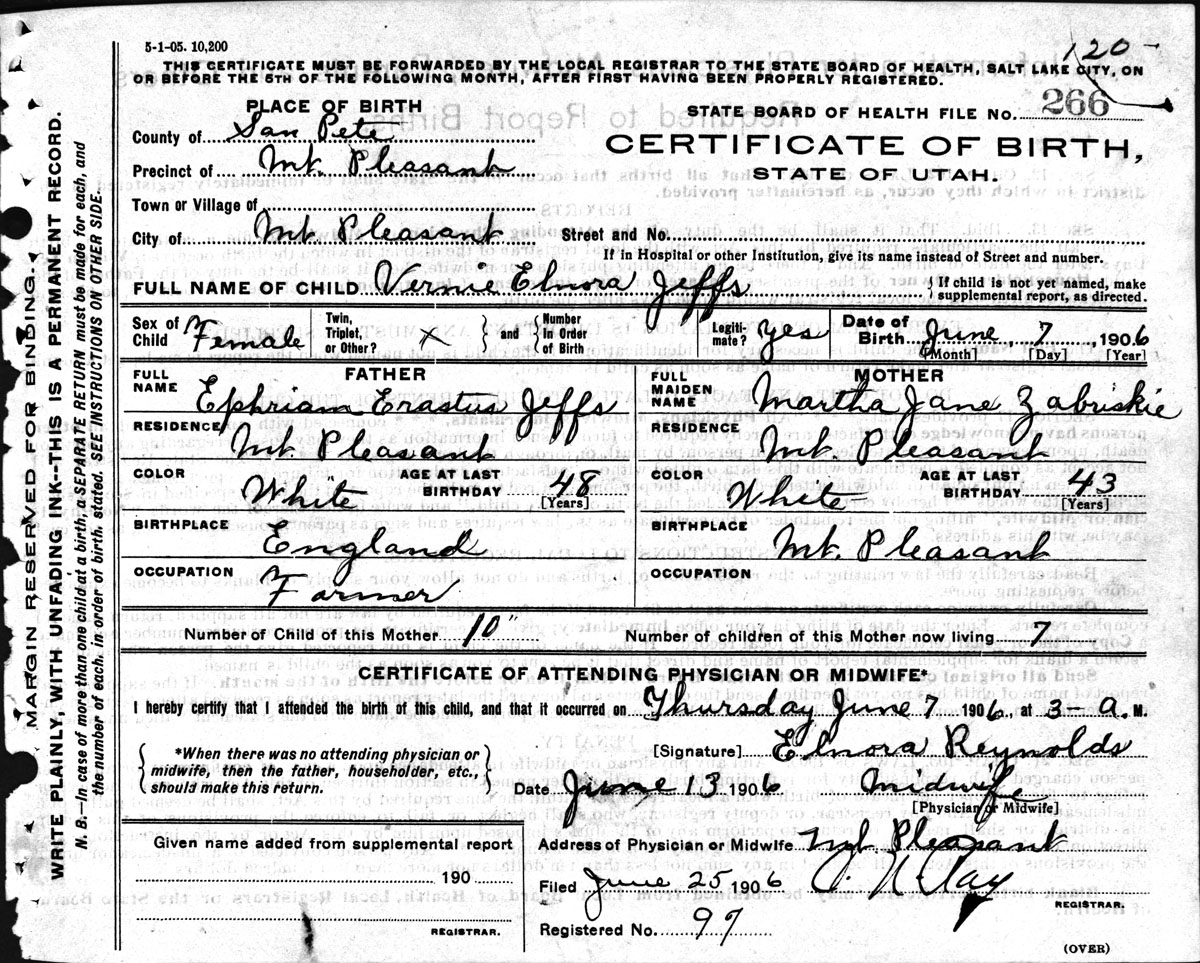 5-1-05. 10,200
120-
THIS CERTIFICATE MUST BE FORWARDED BY THE LOCAL REGISTRAR TO THE STATE BOARD OF HEALTH, SALT LAKE CITY, ON
OR BEFORE THE 5TH OF THE FOLLOWING MONTH, AFTER FIRST HAVING BEEN PROPERLY REGISTERED.
PLACE OF BIRTH
STATE BOARD OF HEALTH FILE NO. 266
County of San Pete
CERTIFICATE OF BIRTH,
Precinct of Mt. Pleasant
STATE OF UTAH.
Town or Village of
City of Mt. Pleasant Street and No.
If in Hospital or other Institution, give its name instead of Street and number.
FULL NAME OF CHILD Vernie Elnora Jeffs { If child is not yet named, make supplemental report, as directed.
Sex of Child Female Twin, Triplet, or Other? x } and { Number In Order of Birth Legiti-mate? yes Date of Birth June 7, 1906
[Month] [Day] [Year]
FATHER
FULL NAME Ephriam Erastus Jeffs
RESIDENCE Mt. Pleasant
COLOR White AGE AT LAST BIRTHDAY 48 [Years]
BIRTHPLACE England
OCCUPATION Farmer
MOTHER
FULL MAIDEN NAME Martha Jane Zabriskie
RESIDENCE Mt. Pleasant
COLOR White AGE AT LAST BIRTHDAY 43 [Years]
BIRTHPLACE Mt. Pleasant
OCCUPATION
Number of Child of this Mother 10" Number of children of this Mother now living 7
CERTIFICATE OF ATTENDING PHYSICIAN OR MIDWIFE*
I hereby certify that I attended the birth of this child, and that it occurred on Thursday June 7 1906, at 3- a. M.
{ *When there was no attending physician or midwife, then the father, householder, etc., should make this return. }
[Signature] Elnora Reynolds
Date June 13 1906 Midwife
[Physician or Midwife]
Given name added from supplemental report
Address of Physician or Midwife Mt Pleasant
190
Filed June 25 1906
REGISTRAR.
REGISTRAR.
Registered No. 97
(OVER)
MARGIN RESERVED FOR BINDING.
WRITE PLAINLY, WITH UNFADING INK--THIS IS A PERMANENT RECORD.
N. B.--In case of more than one child at a birth, a SEPARATE RETURN must be made for each, and
the number of each, in order of birth, stated. SEE INSTRUCTIONS ON OTHER SIDE.